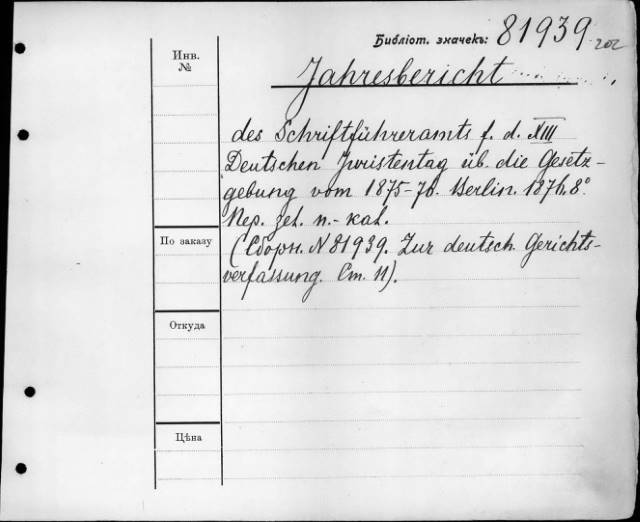 Библіот. значекъ: 81939
202
Инв.
№
Jahresbericht
des Schriftführeramts f. d. XIII
Deutschen Juristentag üb. die Gesetz-
gebung vom 1875-76. Berlin. 1876. 8°
Пер. zel. н.- kal.
(Сборн. № 81939. Zur deutsch. Gerichts-
verfassung. Ст. 11).
По заказу
Откуда
Цѣна